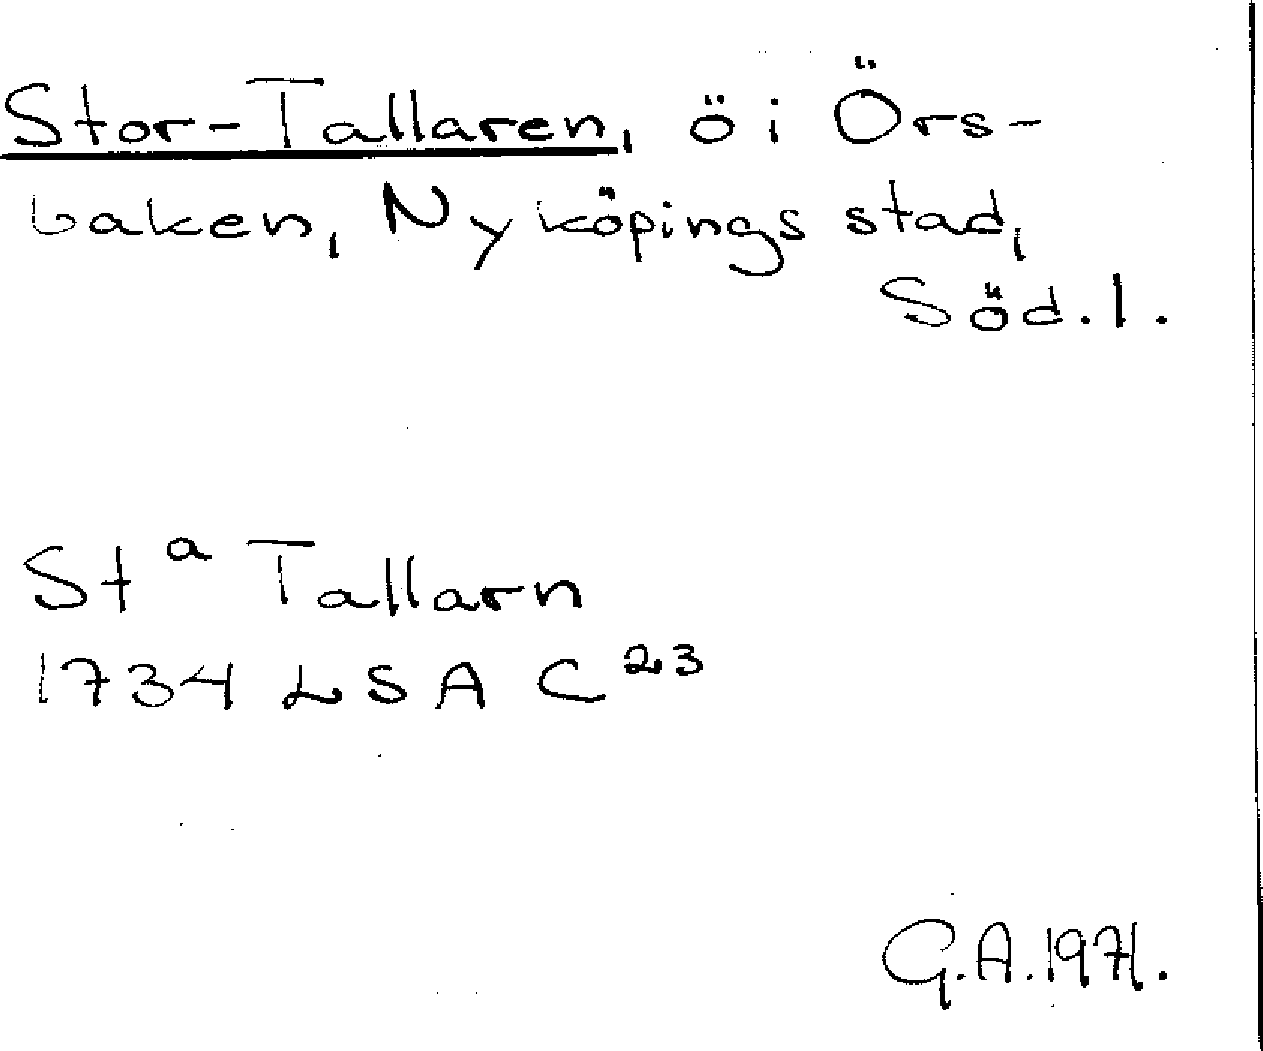 Stor-Tallaren, ö i Örs-
baken, Nyköpings stad,
Söd. l.
St a Tallarn
1734 LSA C 23
G.A. 1971.